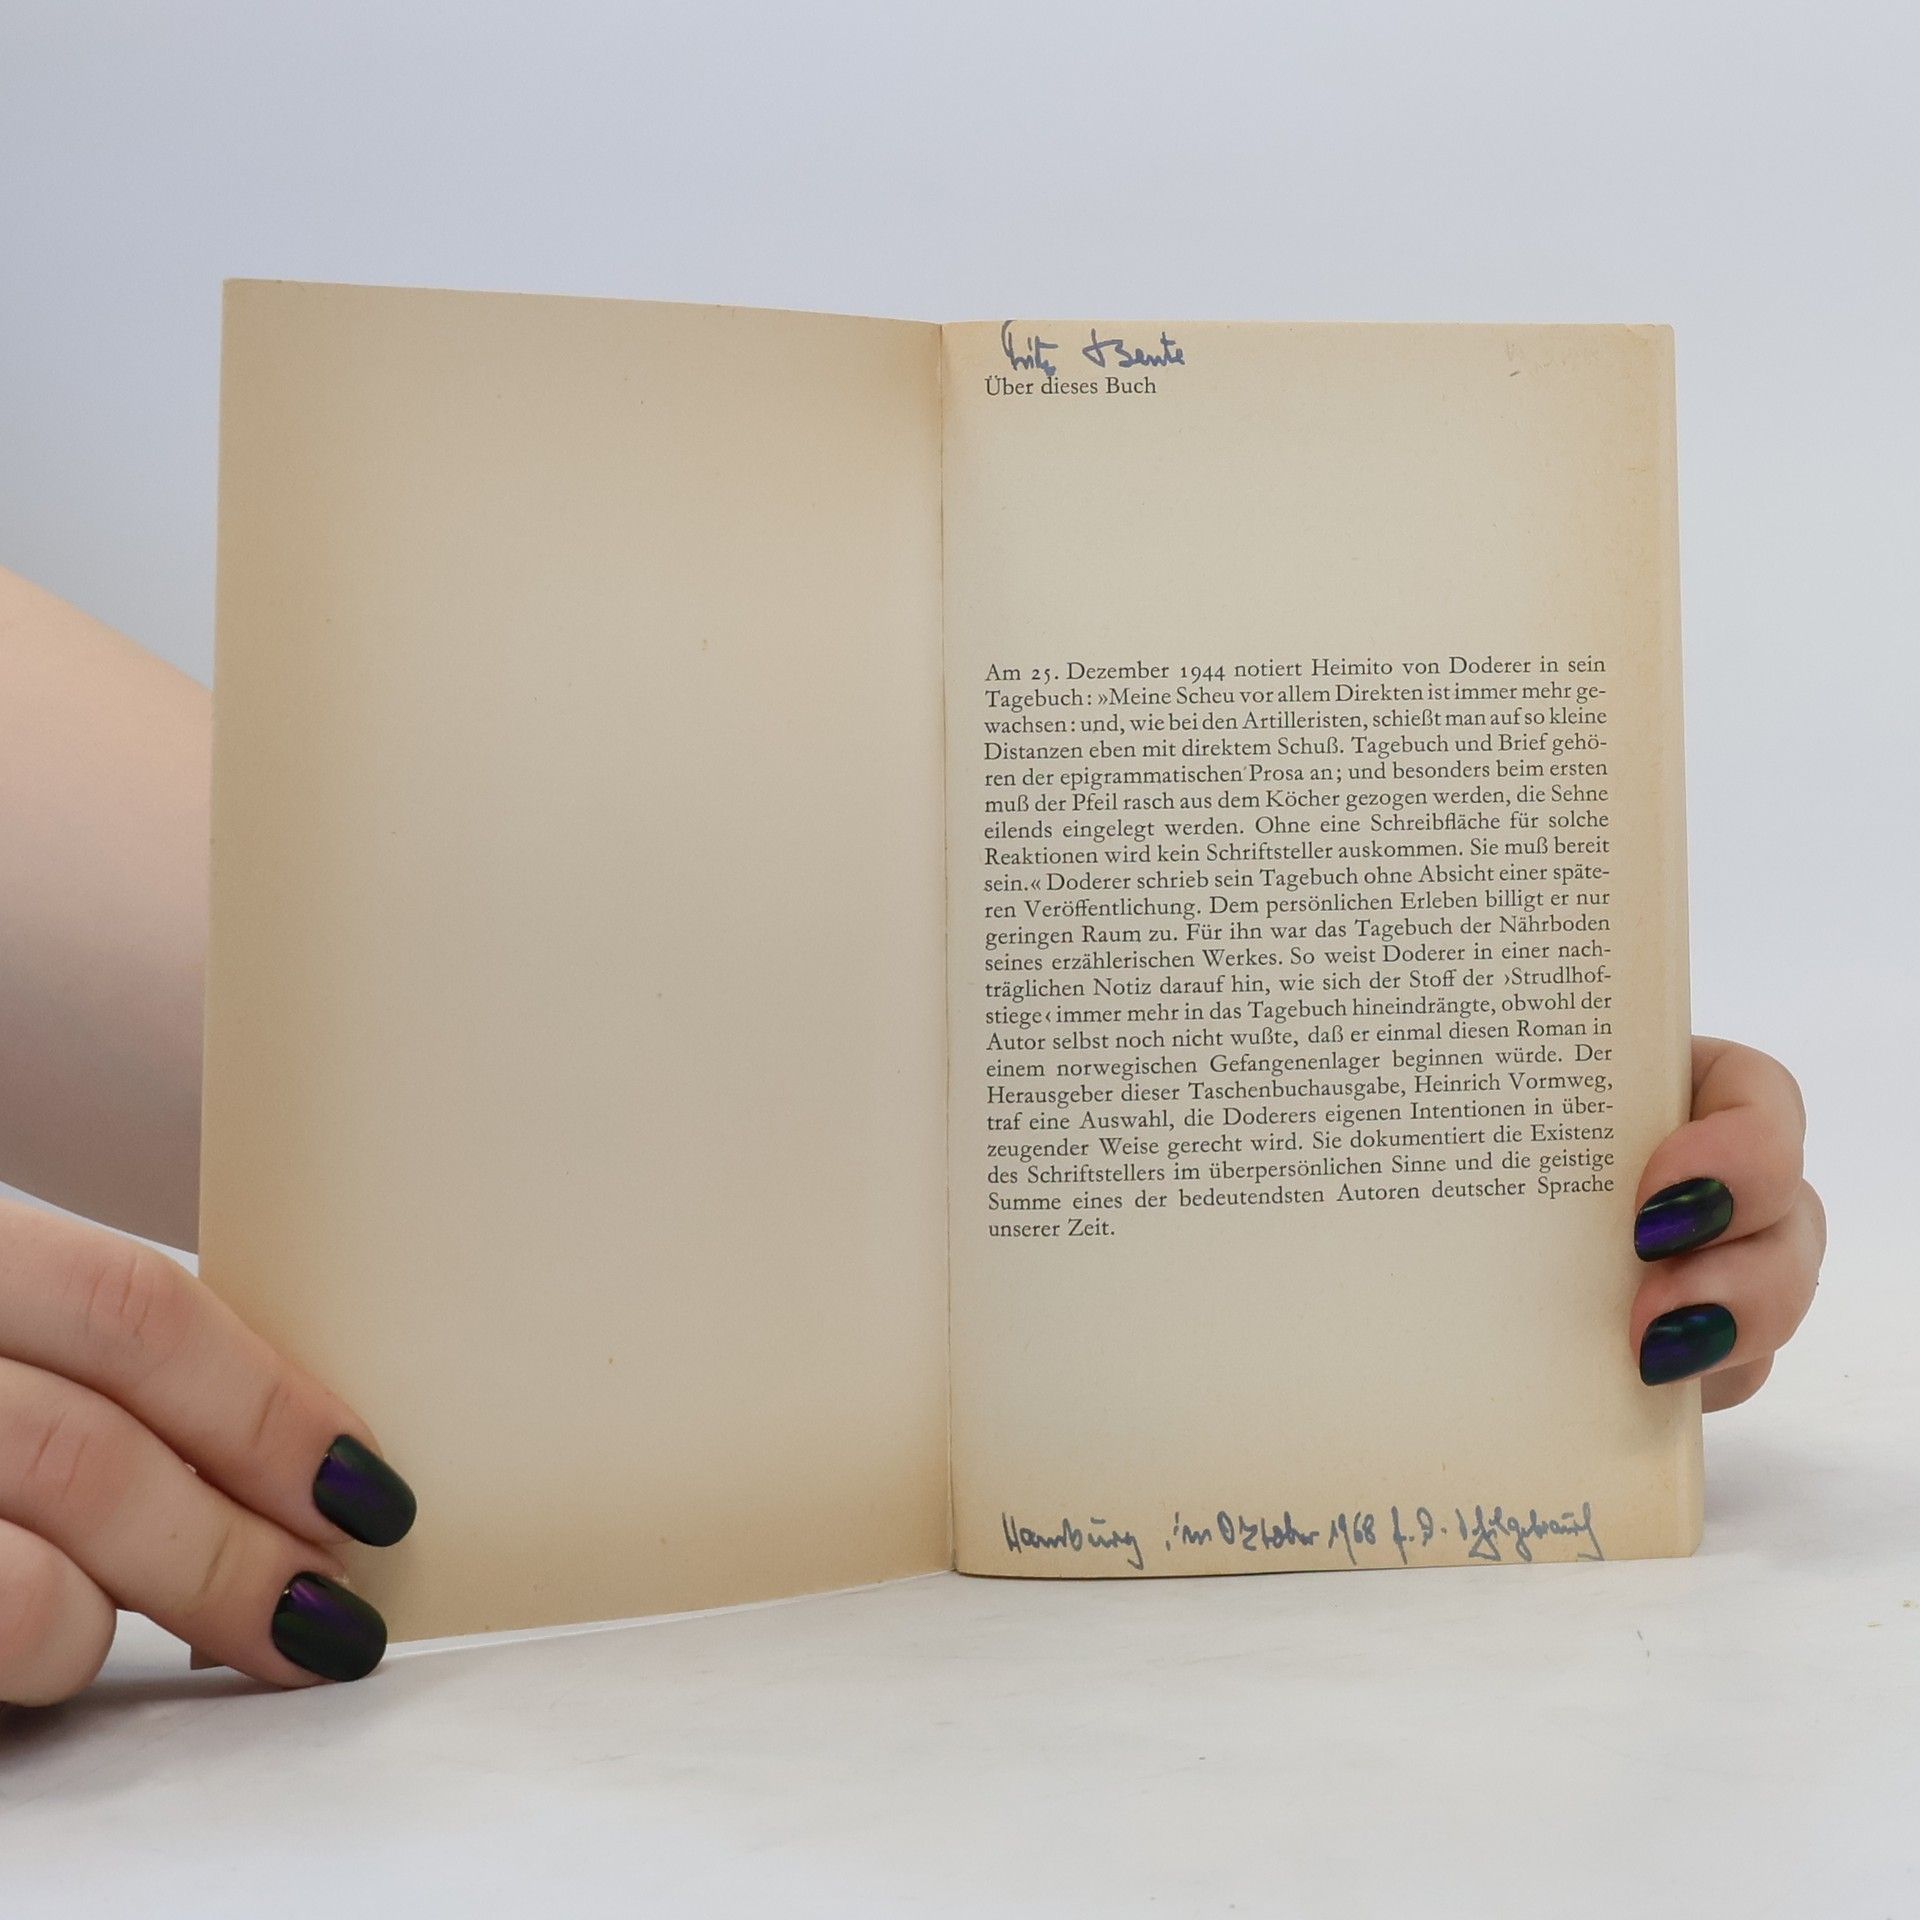 Fritz Bente
Über dieses Buch
Am 25. Dezember 1944 notiert Heimito von Doderer in sein
Tagebuch: »Meine Scheu vor allem Direkten ist immer mehr ge-
wachsen: und, wie bei den Artilleristen, schießt man auf so kleine
Distanzen eben mit direktem Schuß. Tagebuch und Brief gehö-
ren der epigrammatischen Prosa an; und besonders beim ersten
muß der Pfeil rasch aus dem Köcher gezogen werden, die Sehne
eilends eingelegt werden. Ohne eine Schreibfläche für solche
Reaktionen wird kein Schriftsteller auskommen. Sie muß bereit
sein.« Doderer schrieb sein Tagebuch ohne Absicht einer späte-
ren Veröffentlichung. Dem persönlichen Erleben billigt er nur
geringen Raum zu. Für ihn war das Tagebuch der Nährboden
seines erzählerischen Werkes. So weist Doderer in einer nach-
träglichen Notiz darauf hin, wie sich der Stoff der ›Strudlhof-
stiege‹ immer mehr in das Tagebuch hineindrängte, obwohl der
Autor selbst noch nicht wußte, daß er einmal diesen Roman in
einem norwegischen Gefangenenlager beginnen würde. Der
Herausgeber dieser Taschenbuchausgabe, Heinrich Vormweg,
traf eine Auswahl, die Doderers eigenen Intentionen in über-
zeugender Weise gerecht wird. Sie dokumentiert die Existenz
des Schriftstellers im überpersönlichen Sinne und die geistige
Summe eines der bedeutendsten Autoren deutscher Sprache
unserer Zeit.
Hamburg, im Oktober 1968 f. d.